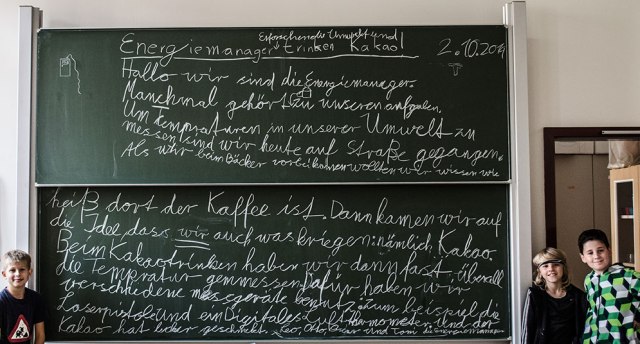 Erforschen die Umwelt und
Energiemanager trinken Kakao!
2.10.201
Hallo wir sind die Energiemanager.
Manchmal gehört zu unseren aufgaben.
Um tempraturen in unserer Umwelt zu
messen sind wir heute auf Straße gegangen.
Als wir beim Bäcker vorbeikommen wollten wir wissen wie
heiß dort der Kaffee ist. Dann kamen wir auf
die Idee dass wir auch was kriegen: nämlich Kakao.
Beim Kakaotrinken haben wir dann fast überall
die Tempratur gemmessen. Dafür haben wir
verschiedene messgeräte benutzt zum beispiel die
Laserpistole und ein Digitales Luft thermometer. Und der
Kakao hat lecker geschmekt. Leo, Otto, Oscar und Toni die Energiemanager